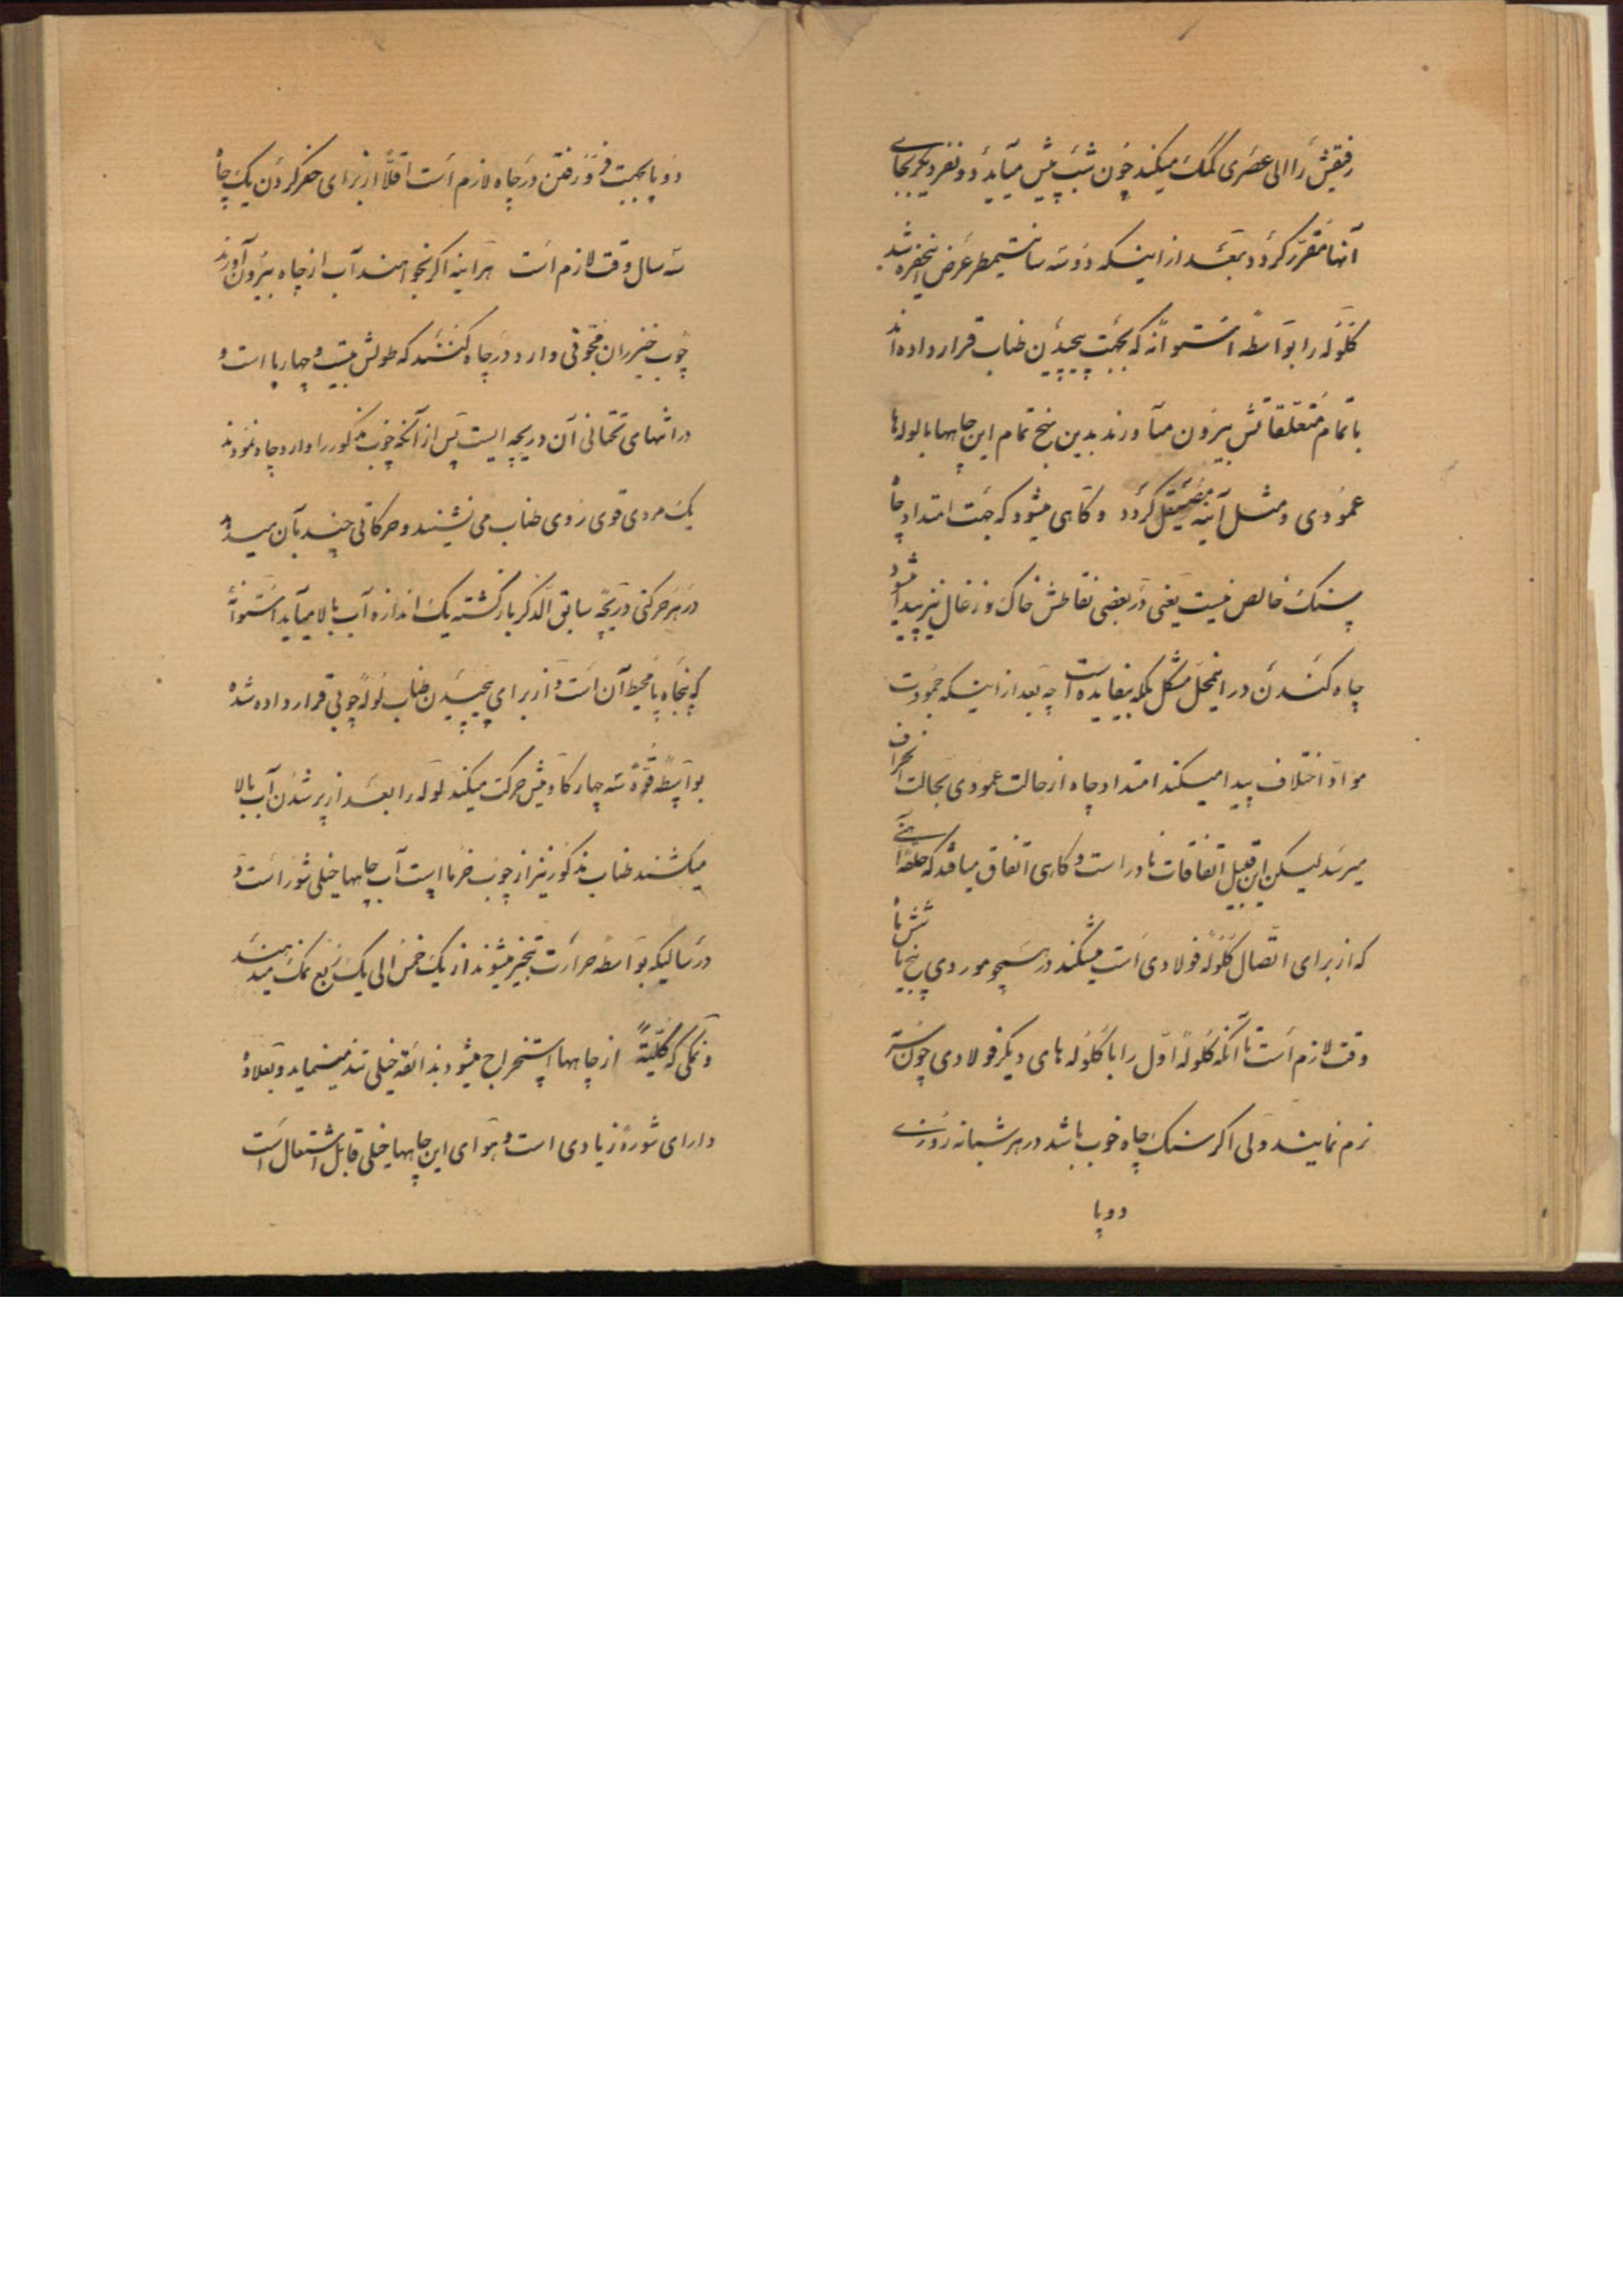 رفیقش را الی عصری کمک میکند چون شب پیش میآید دو نفر دیگر بجای
آنها مقرر گردد بعد از اینکه دو سه سانتیمطر عرض اینحفره شد
گلوله را بواسطه استوانه که بجهت پیچیدن طناب قرار داده‌اند
با تمام متعلقاتش بیرون میآورند بدین نهج تمام این چاهها با لوله‌ها
عمودی و مثل آینه مصیقل گردد و گاهی میشود که جهت امتداد چاه
سنک خالص نیست یعنی در بعضی نقاطش خاک و زغال نیز پیدا میشود
چاه کندن در اینمحل مشکل بلکه بیفایده است چه بعد از اینکه جمودت
مواد اختلاف پیدا میکند امتداد چاه از حالت عمودی بحالت انحراف
میرسد لیکن این قبیل اتفاقات نادر است و گاهی اتفاق میافتد که حلقه آهنی
که از برای اتصال گلوله فولادی است میشکند در سیچو موردی پنج یا شش ماه
وقت لازم است تا آنکه گلوله اول را با گلوله های دیگر فولادی چون سرمه
نرم نمایند ولی اگر سنک چاه خوب باشد در هر شبانه روزی
دو پا
دو پا بجهت فرو رفتن در چاه لازم است اقلاً از برای حفر کردن یک چاه
سه سال وقت لازم است هر آینه اگر بخواهند آب از چاه بیرون آورند
چوب خیزران مجوفی وارد در چاه کنند که طولش بیست و چهار پا است و
در انتهای تحتانی آن دریچه ایست پس از آنکه چوب مذکور را وارد چاه نمودند
یک مردی قوی روی طناب می نشیند و حرکاتی چند بآن میدهد
در هر حرکتی دریچه سابق الذکر باز گشته یک اندازه آب بالا میآید استوانه
که پنجاه پا محیط آن است و از برای پیچیدن طناب لوله چوبی قرار داده شده
بواسطه قوه سه چهار گاومیش حرکت میکند لوله را بعد از پر شدن آب بالا
میکشند طناب مذکور نیز از چوب خرما است آب چاهها خیلی شور است و
در سالیکه بواسطه حرارت تبخیر میشوند از یک خمس الی یک ربع نمک میدهند
و نمکی که کلیةً از چاهها استخراج میشود بذائقه خیلی تند مینماید و بعلاوه
دارای شوره زیادی است و هوای این چاهها خیلی قابل اشتعال است